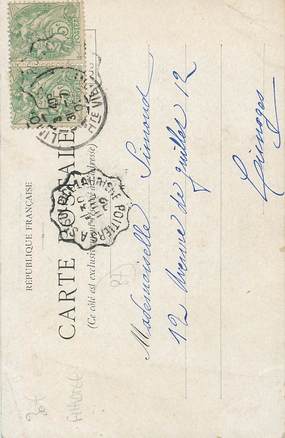 RÉPUBLIQUE FRANÇAISE
CARTE POSTALE
(Ce côté est exclusivement réservé à l'adresse)
Mademoiselle Simond
12 Avenue de Juillet 12
Limoges
POITIERS A